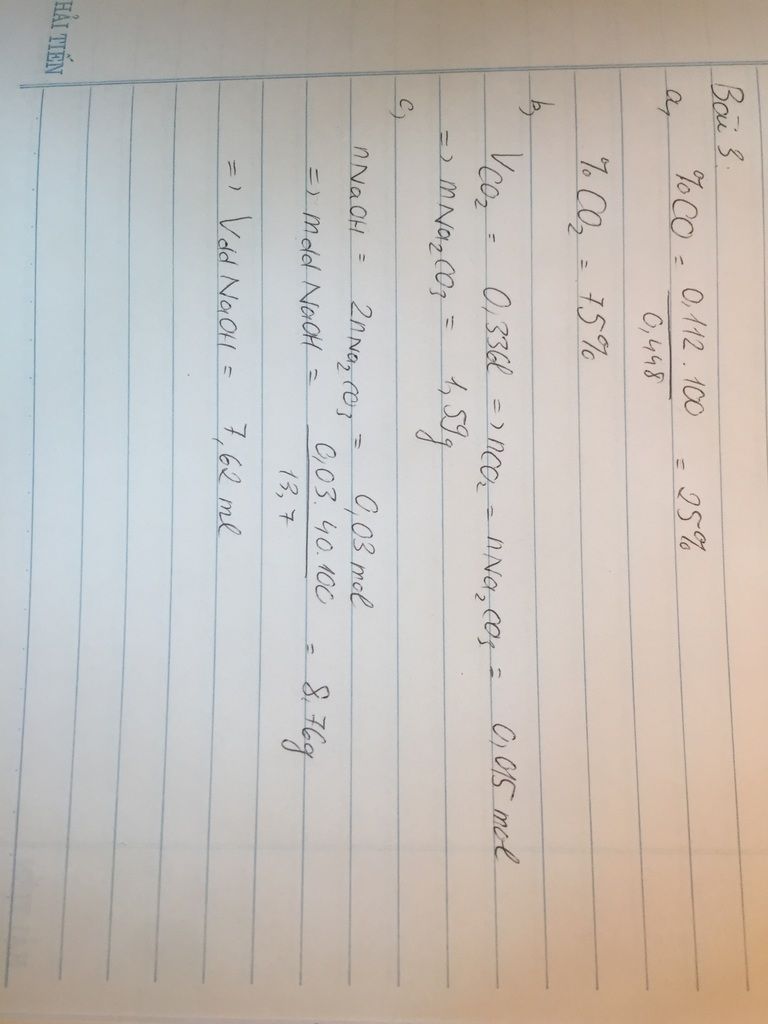 HẢI TIẾN
Bài 3.
a, %CO = 0,112.100 / 0,448 = 25%
%CO₂ = 75%
b,
VCO₂ = 0,336l => nCO₂ = nNa₂CO₃ = 0,015 mol
=> mNa₂CO₃ = 1,59g
c,
nNaOH = 2nNa₂CO₃ = 0,03 mol
=> mdd NaOH = 0,03.40.100 / 13,7 = 8,76g
=> Vdd NaOH = 7,62 ml